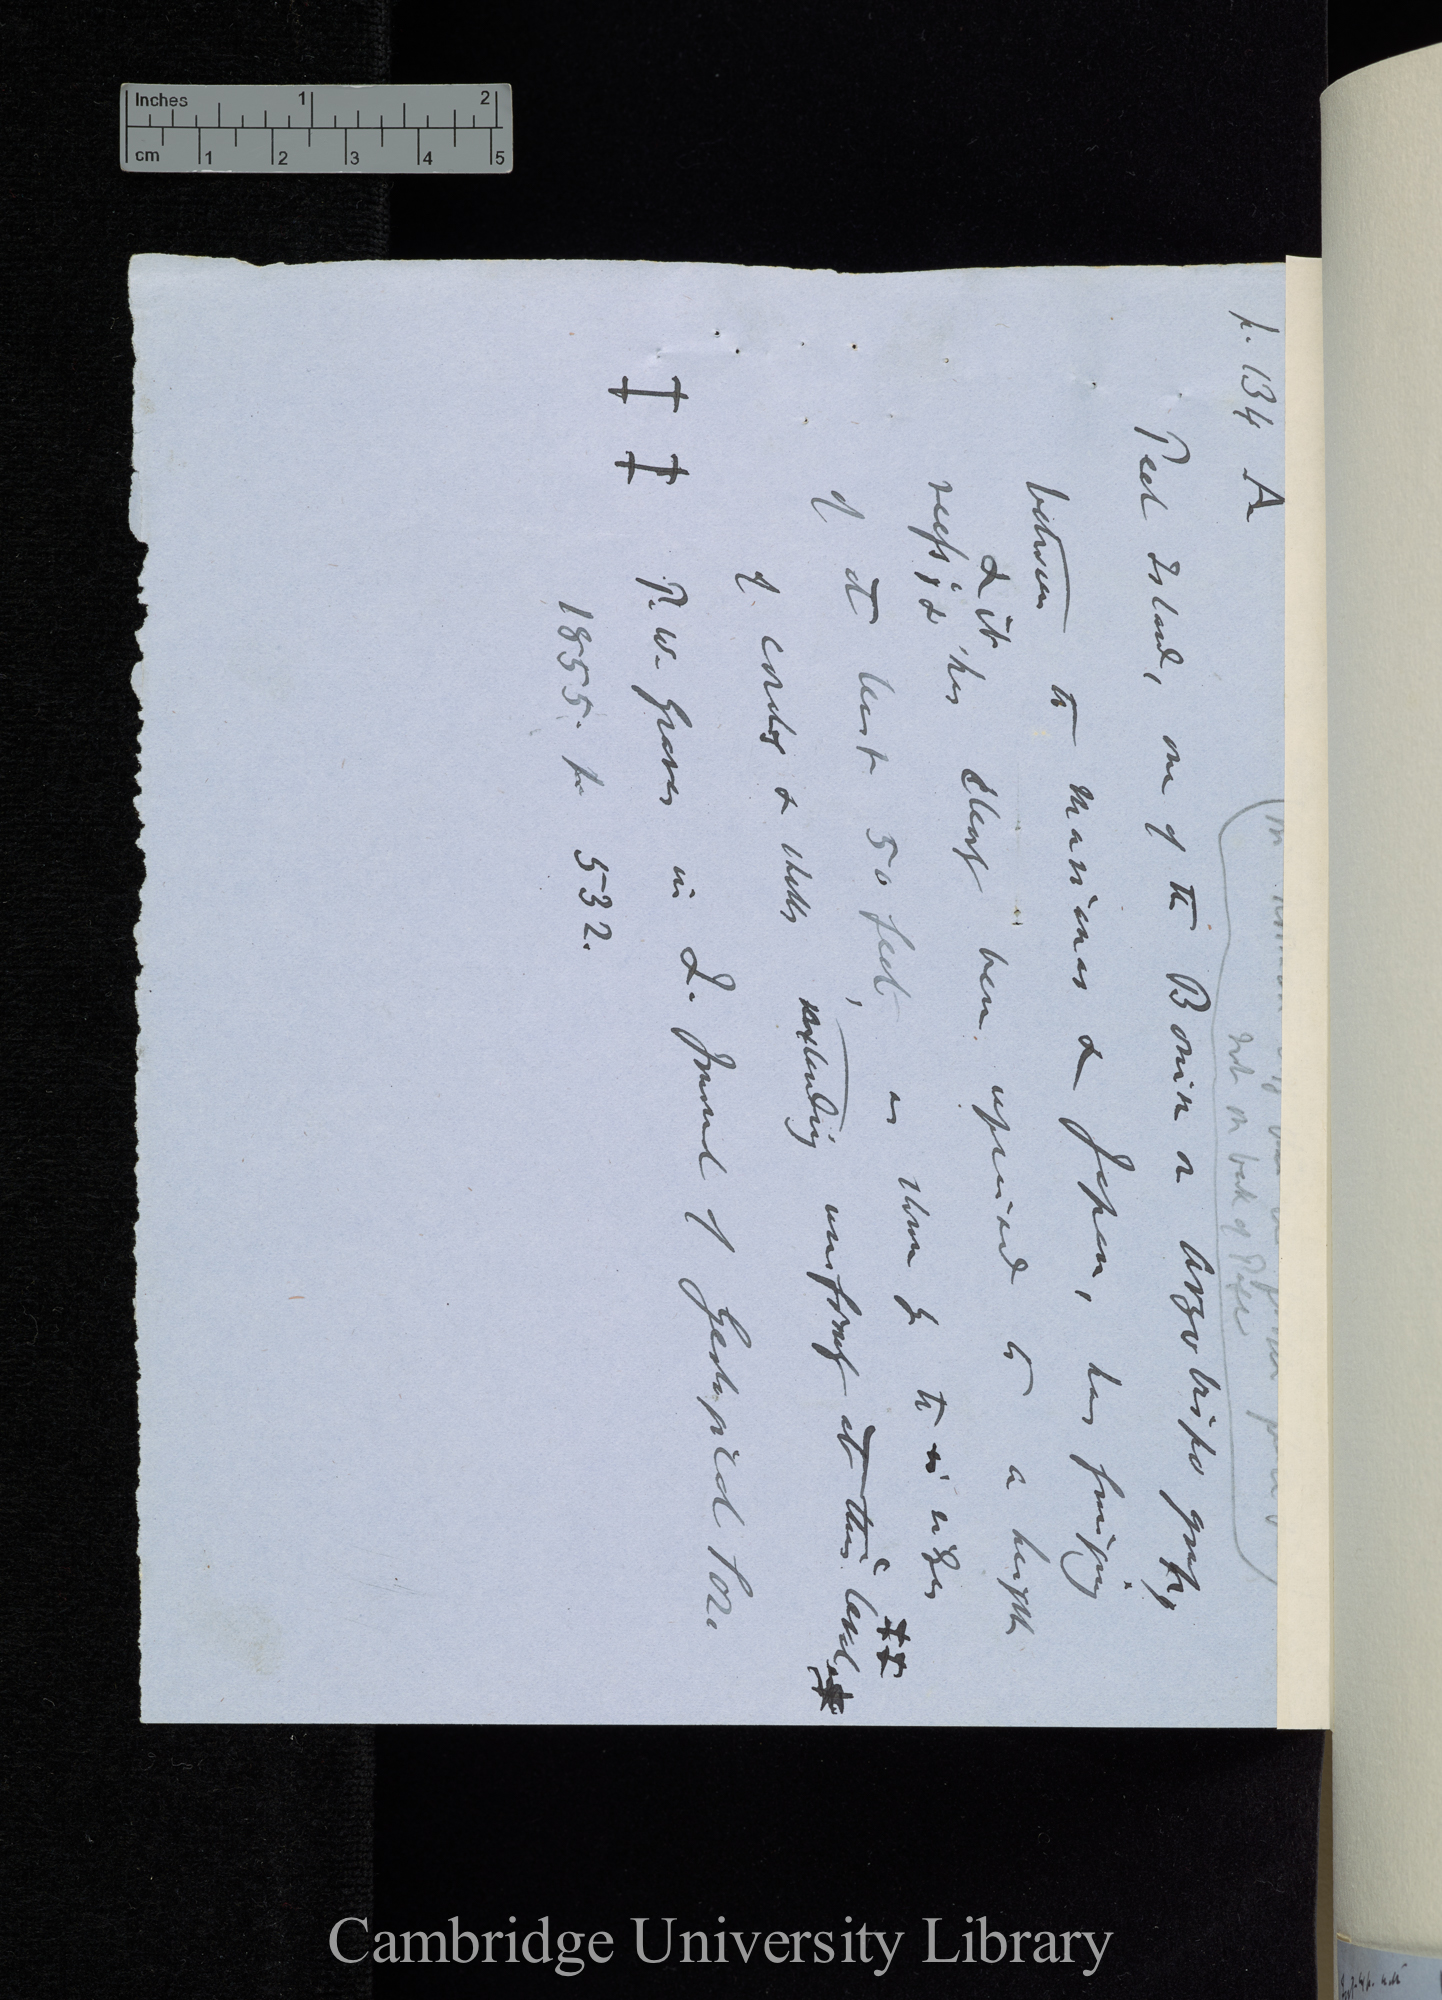 Inches 1 2
cm 1 2 3 4 5
p. 134 A
not on back of Paper
Peel Island, one of the Bonin or Arzobispo group,
between the Marianas & Japan, has fringing
reefs; & & it has clearly been upraised to a height
of at least 50 feet, as shown by the
of corals & shells extending uniformly at this level ‡‡
‡‡ P. W. Graves in L. Journal of Geograph Soc.
1855. p. 532.
Cambridge University Library